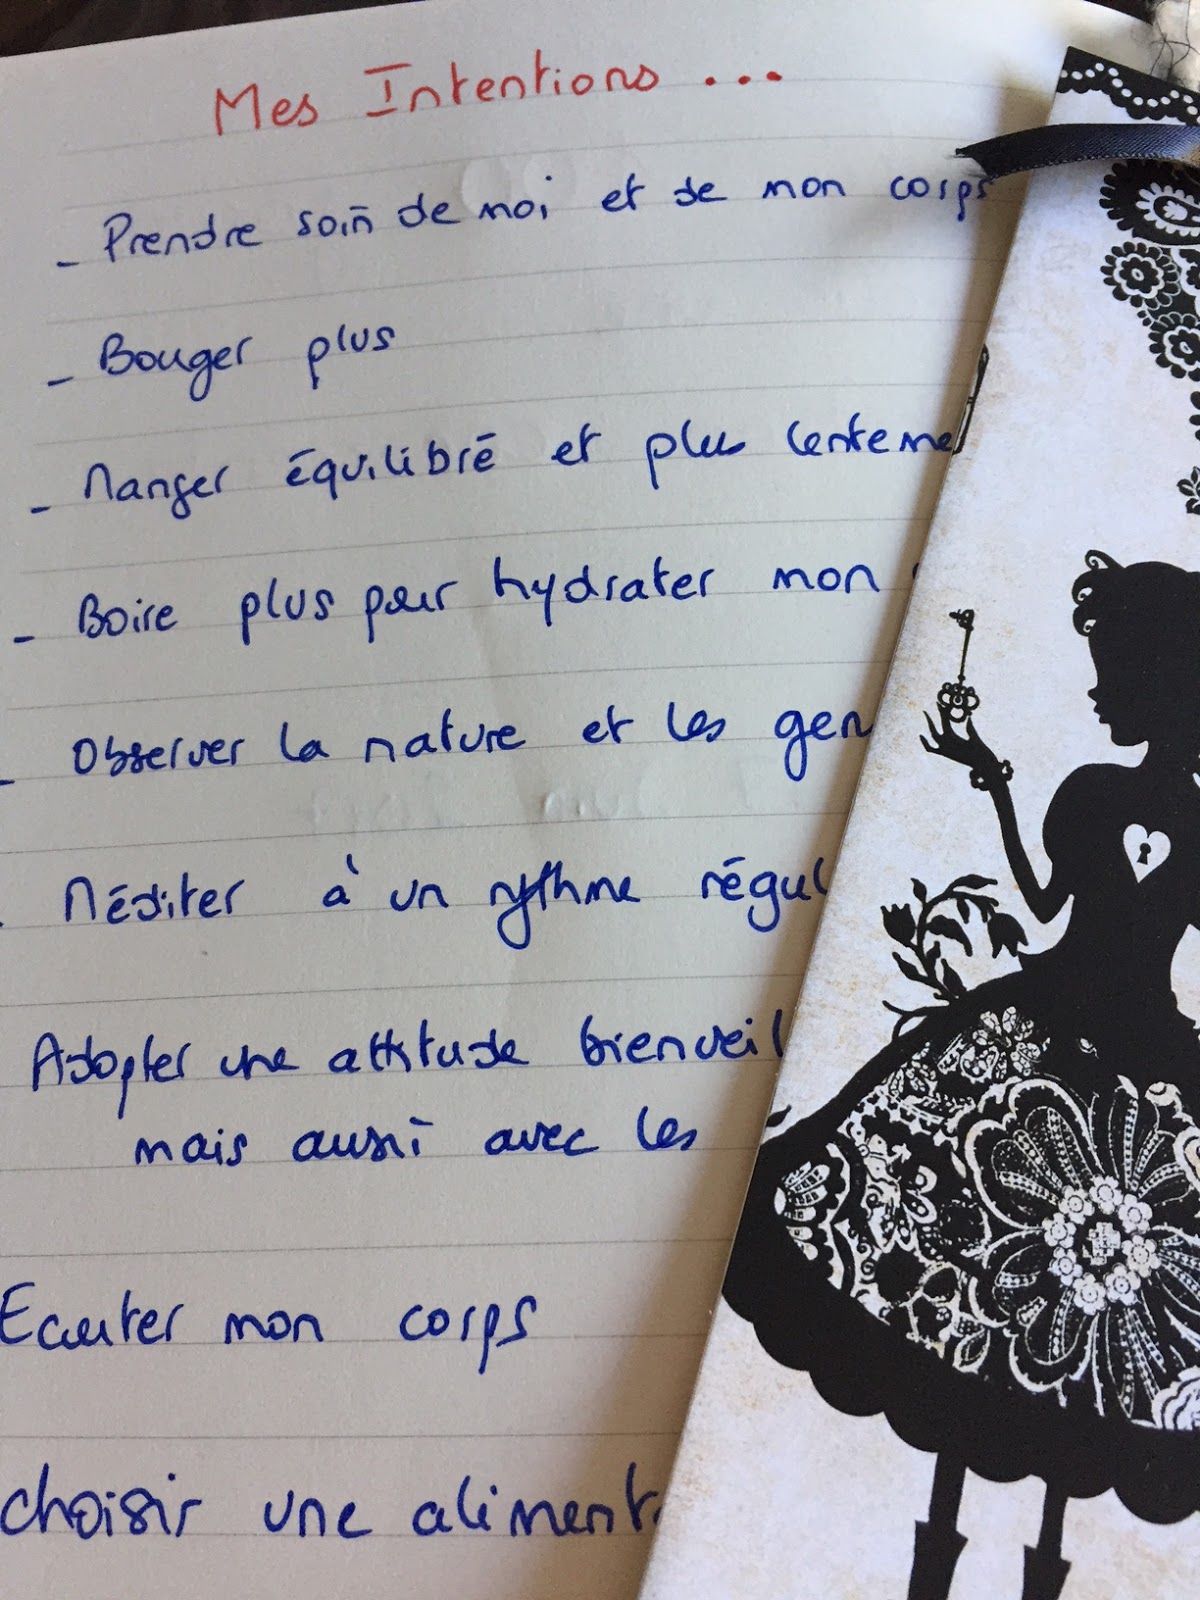 Mes Intentions ...
- Prendre soin de moi et de mon corps
- Bouger plus
- Manger équilibré et plus lenteme
- Boire plus pour hydrater mon
- Observer la nature et les gen
- Méditer à un rythme régul
Adopter une attitude bienveil
mais aussi avec les
Ecouter mon corps
choisir une aliment